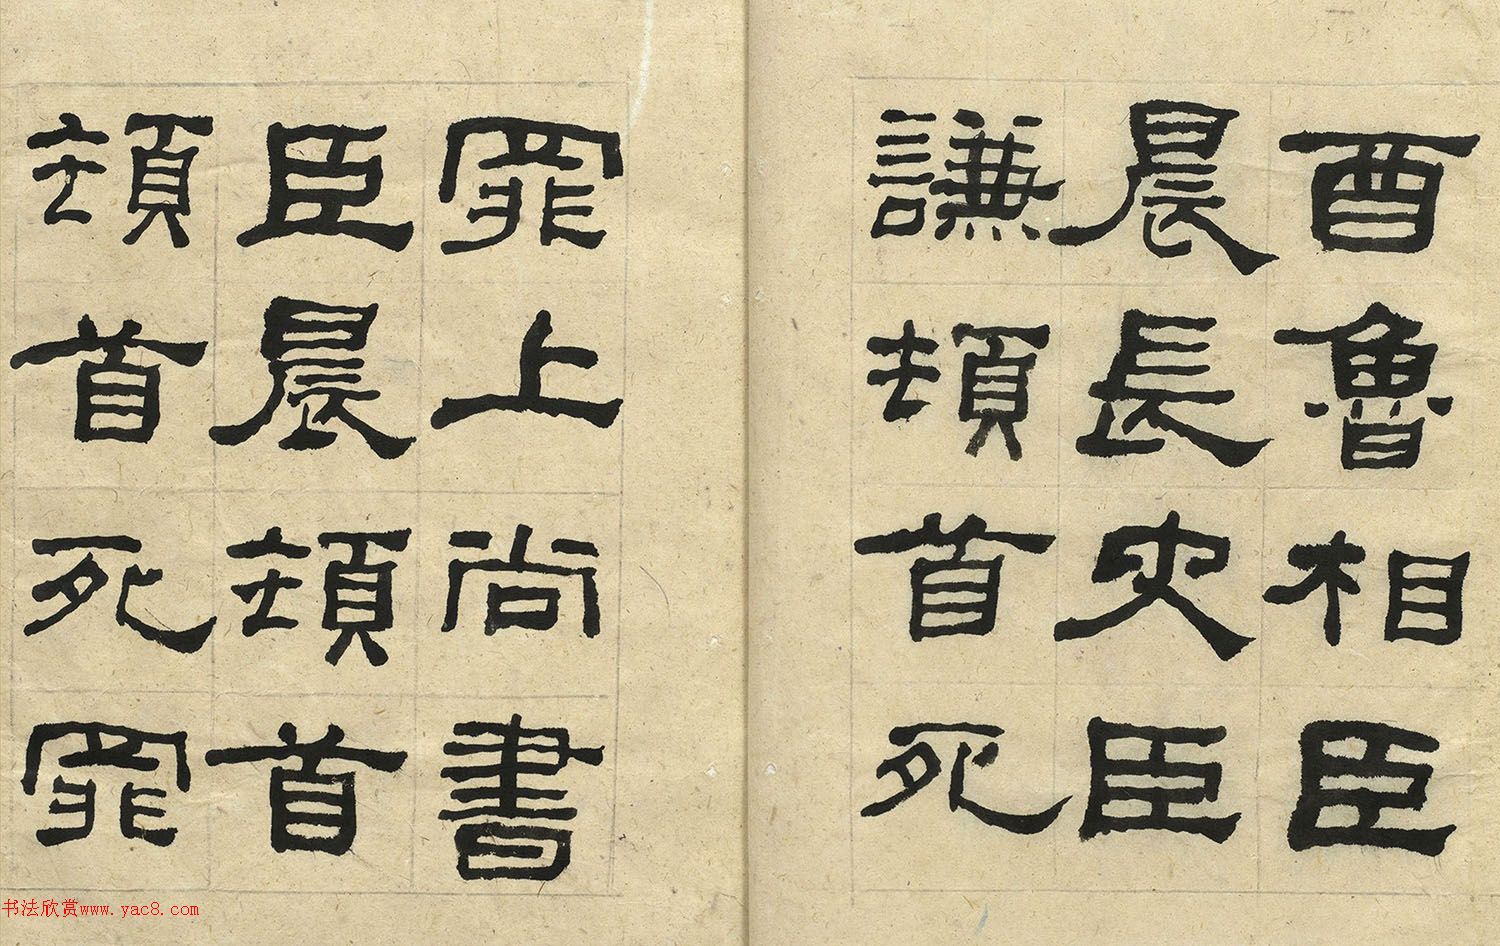 酉魯相臣
晨長史臣
謙頓首死
罪上尚書
臣晨頓首
頓首死罪
书法欣赏www.yac8.com